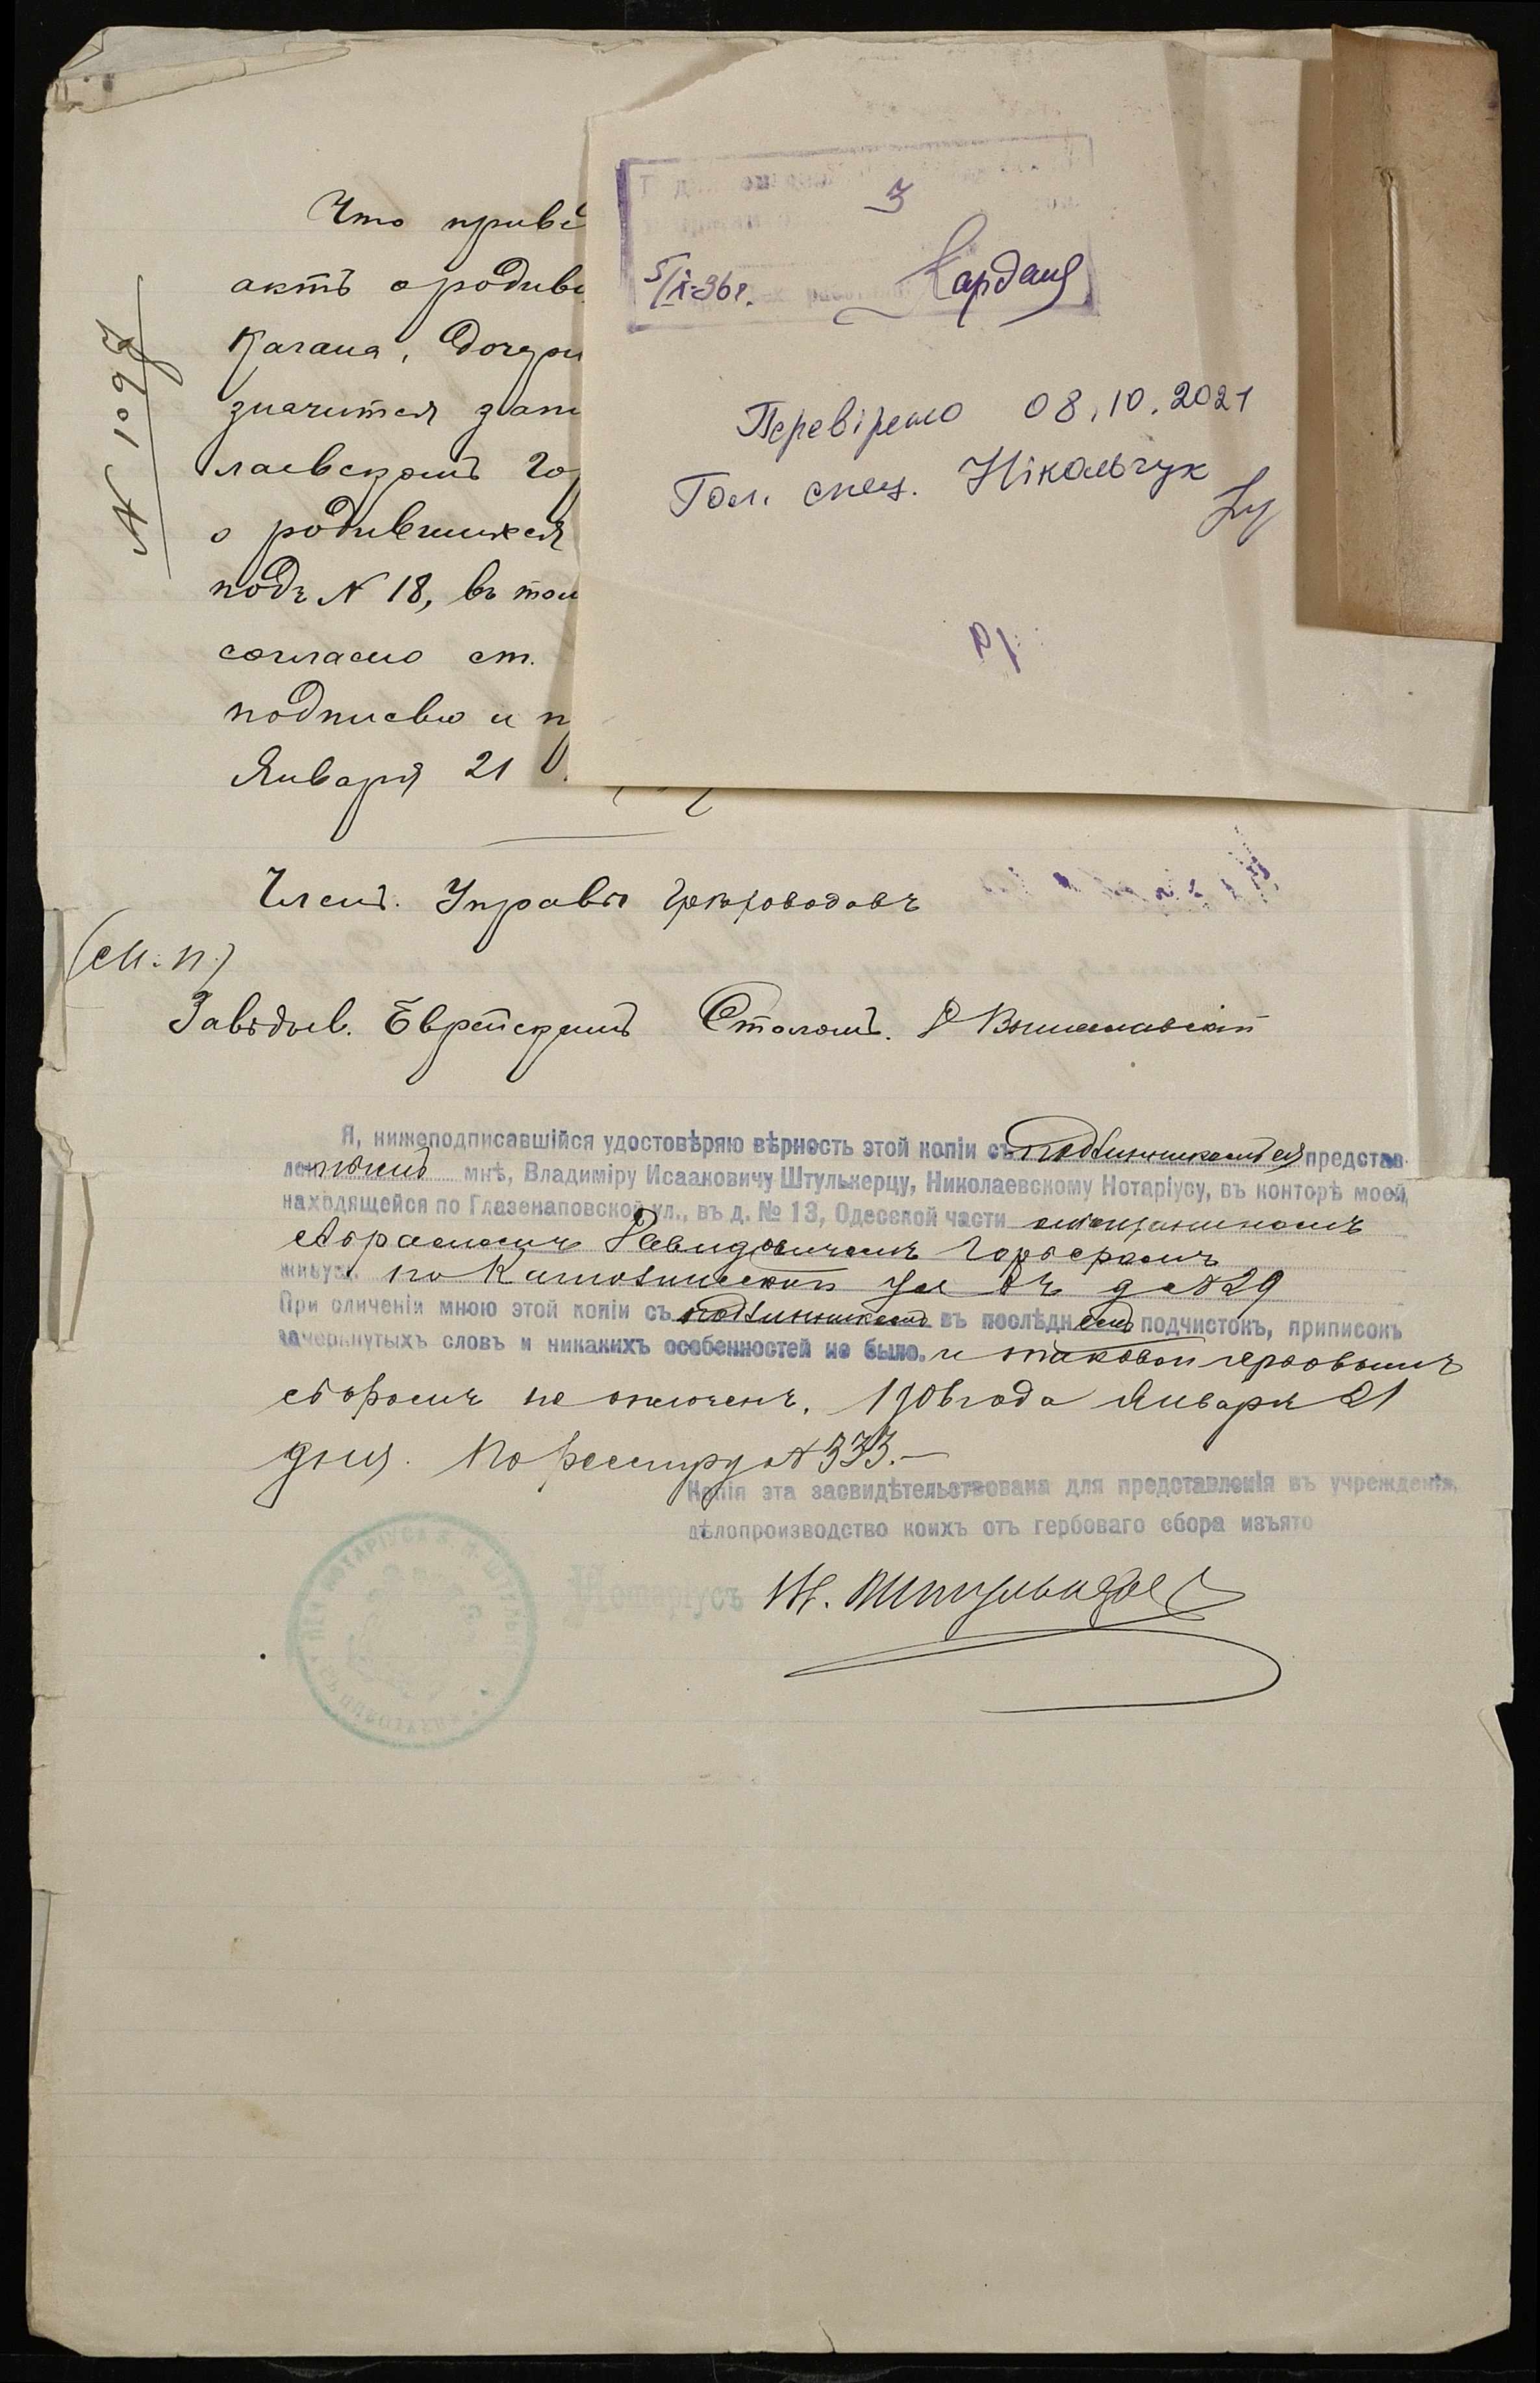 № 1097
Что приве
актъ о родивш
Кагана, дочери
значится запи
лаевскомъ Го
о родившихся
подъ N 18, въ том
согласно ст.
подписью и п
Января 21
3
5/X-96г.
Перевірено 08.10.2021
Гол. спец. Нікольчук
Членъ Управы
(М.п.)
Завѣдыв. Еврейскимъ Столомъ.
Я, нижеподписавшійся удостовѣряю вѣрность этой копіи съ подлинникомъ ея представ-
леннымъ мнѣ, Владиміру Исааковичу Штулькерцу, Николаевскому Нотаріусу, въ конторѣ моей,
находящейся по Глазенаповской ул., въ д. № 13, Одесской части мѣщаниномъ
Абрамомъ Давидовичемъ
живущ. по Католической ул въ д N 29
При сличеніи мною этой копіи съ подлинникомъ въ послѣднемъ подчистокъ, приписокъ
зачеркнутыхъ словъ и никакихъ особенностей не было. и таковой гербовымъ
сборомъ не оплоченъ. 1906 года Января 21
дня. По реестру N 333.—
Копія эта засвидѣтельствована для представленія въ учрежденія,
дѣлопроизводство коихъ отъ гербоваго сбора изъято
Нотаріусъ